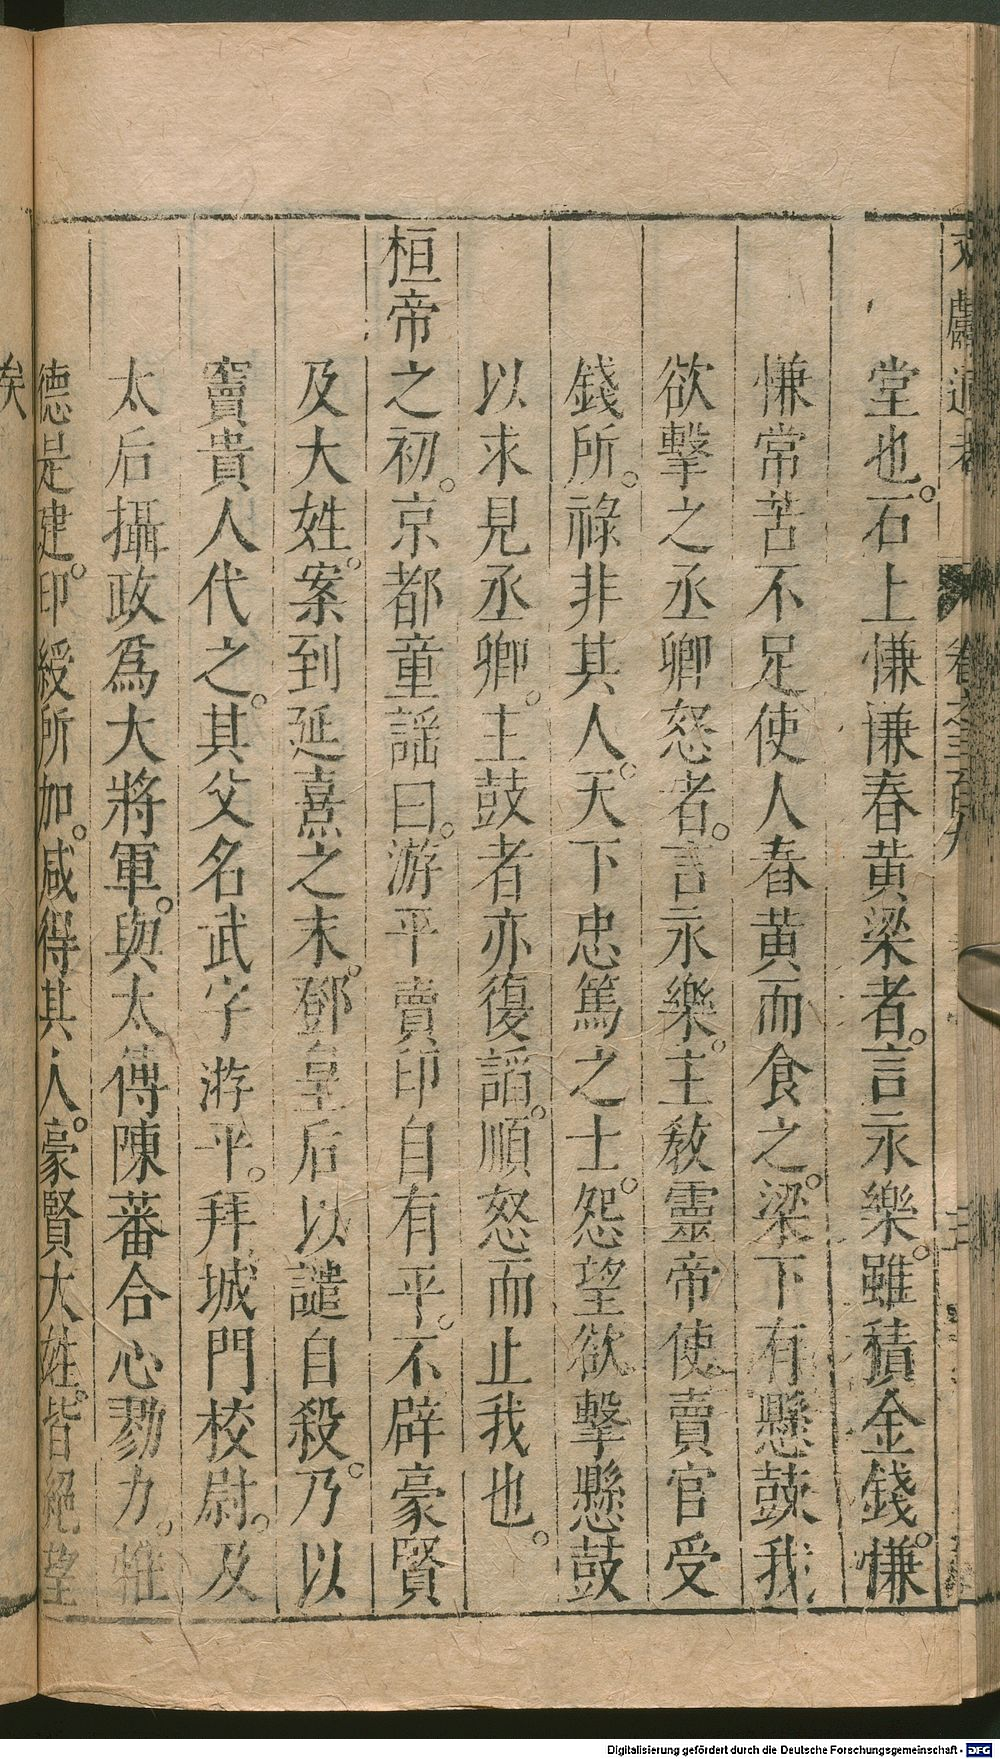 文獻通考 卷之三百九
堂也。石上慊慊舂黃梁者。言永樂。雖積金錢。慊
慊常苦不足使人舂黃而食之。梁下有懸鼓我
欲擊之丞卿怒者。言永樂。主敎靈帝使賣官受
錢所。祿非其人。天下忠篤之士。怨望欲擊懸鼓
以求見丞卿。主鼓者亦復諂。順怒而止我也。
桓帝之初。京都童謡曰。游平賣印自有平。不辟豪賢
及大姓。案到延熹之末。鄧皇后以譴自殺。乃以
竇貴人代之。其父名武字游平。拜城門校尉。及
太后攝政爲大將軍。與太傅陳蕃合心勠力。惟
德是建。印綬所加。咸得其人。豪賢大姓。皆絕望
矣
Digitalisierung gefördert durch die Deutsche Forschungsgemeinschaft - DFG